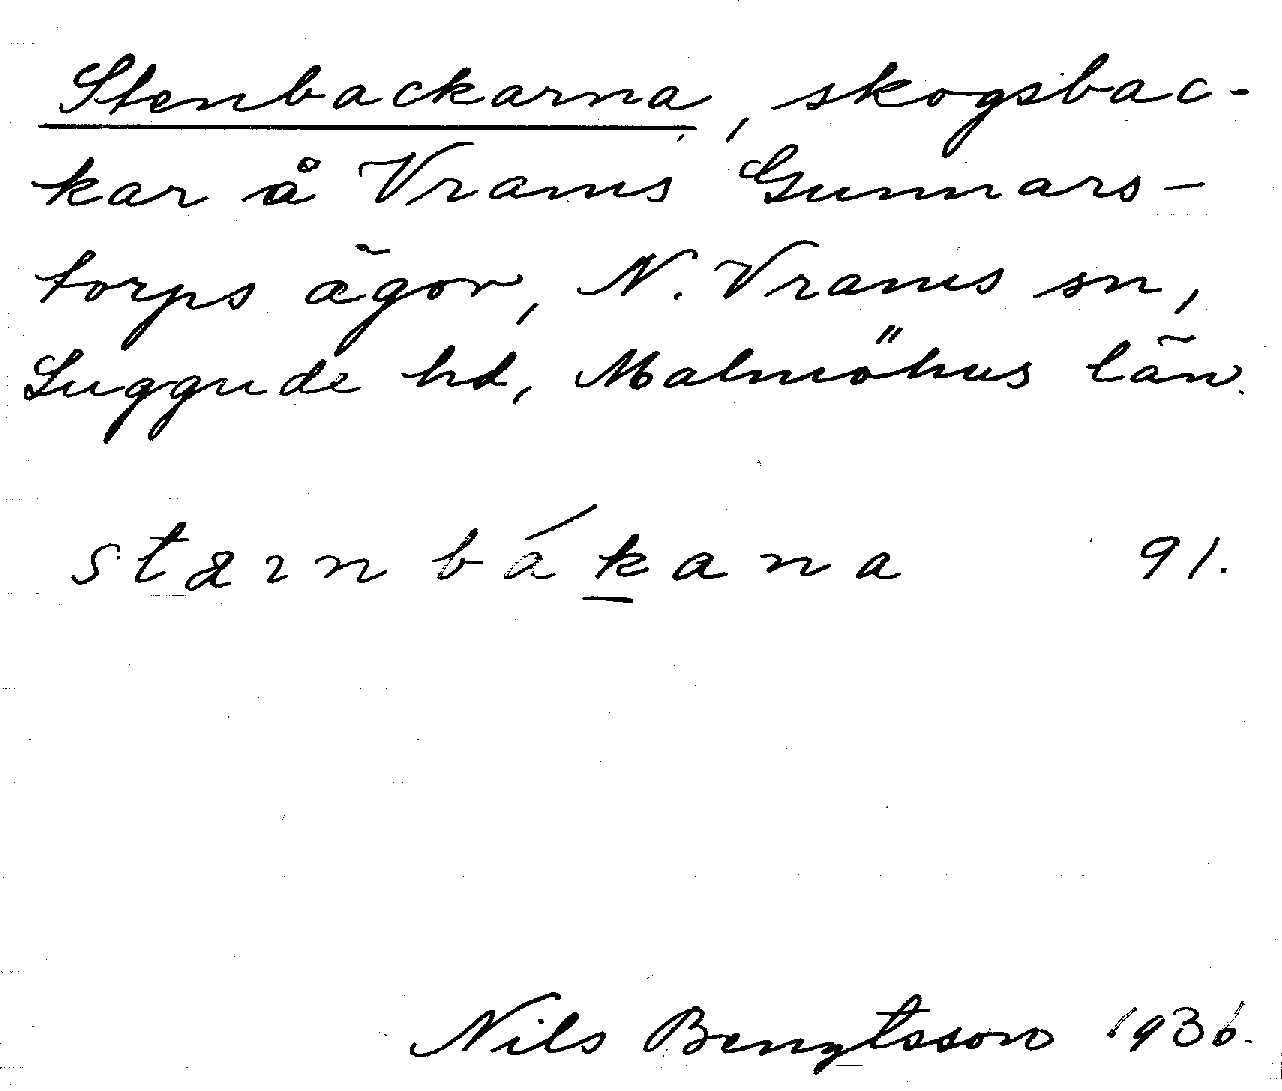 Stenbackarna, skogsbac-
kar å Vrams Gunnars-
torps ägor, N. Vrams sn,
Luggude hd, Malmöhus län.
stæın bákana 91.
Nils Bengtsson 1936.